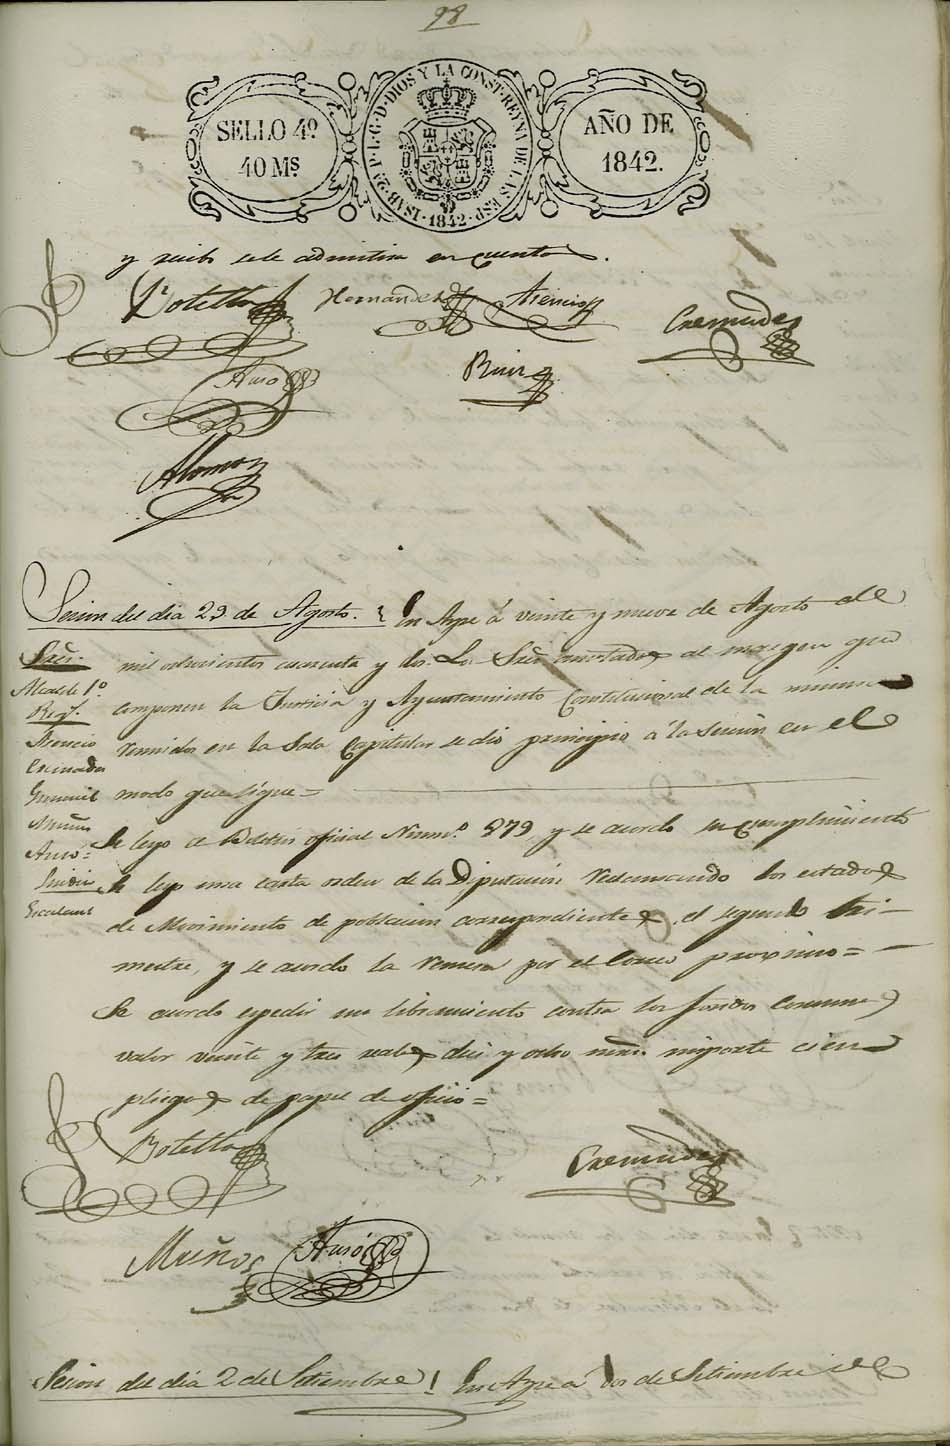 98
SELLO 4º
40 Ms.
ISAB. 2ª P. L. G. D. DIOS Y LA CONST. REYNA DE LAS ESP. 1842
AÑO DE
1842.
y recibo se le admitira en cuenta.
Botella Hernandez Asencio
Cremades
Auso Ruiz
Alonso
Sesion del dia 29 de Agosto. En Aspe á veinte y nueve de Agosto de
Sres.
mil ochocientos cuarenta y dos. Los Sres. anotados al margen que
Alcalde 1º
componen la Justicia y Ayuntamiento Constitucional de la misma
Regs.
Asencio
reunidos en la Sala Capitular se dio principio á la sesion en el
Cremades
modo que sigue=
Muñoz
Se leyo el Boletin oficial Numº. 879, y se acordo su cumplimiento
Auso=
Se leyo una carta orden de la Diputacion reclamando los estados
de Movimiento de poblacion correspondientes el segundo tri-
mestre, y se acordo la remesa por el Correo proximo=
Se acordo espedir un libramiento contra los fondos Comunes
valor veinte y tres reales diez y ocho mrs. importe cien
pliegos de papel de oficio=
Botella
Cremades
Muñoz Auso
Sesion del dia 2 de Setiembre! En Aspe á dos de Setiembre de